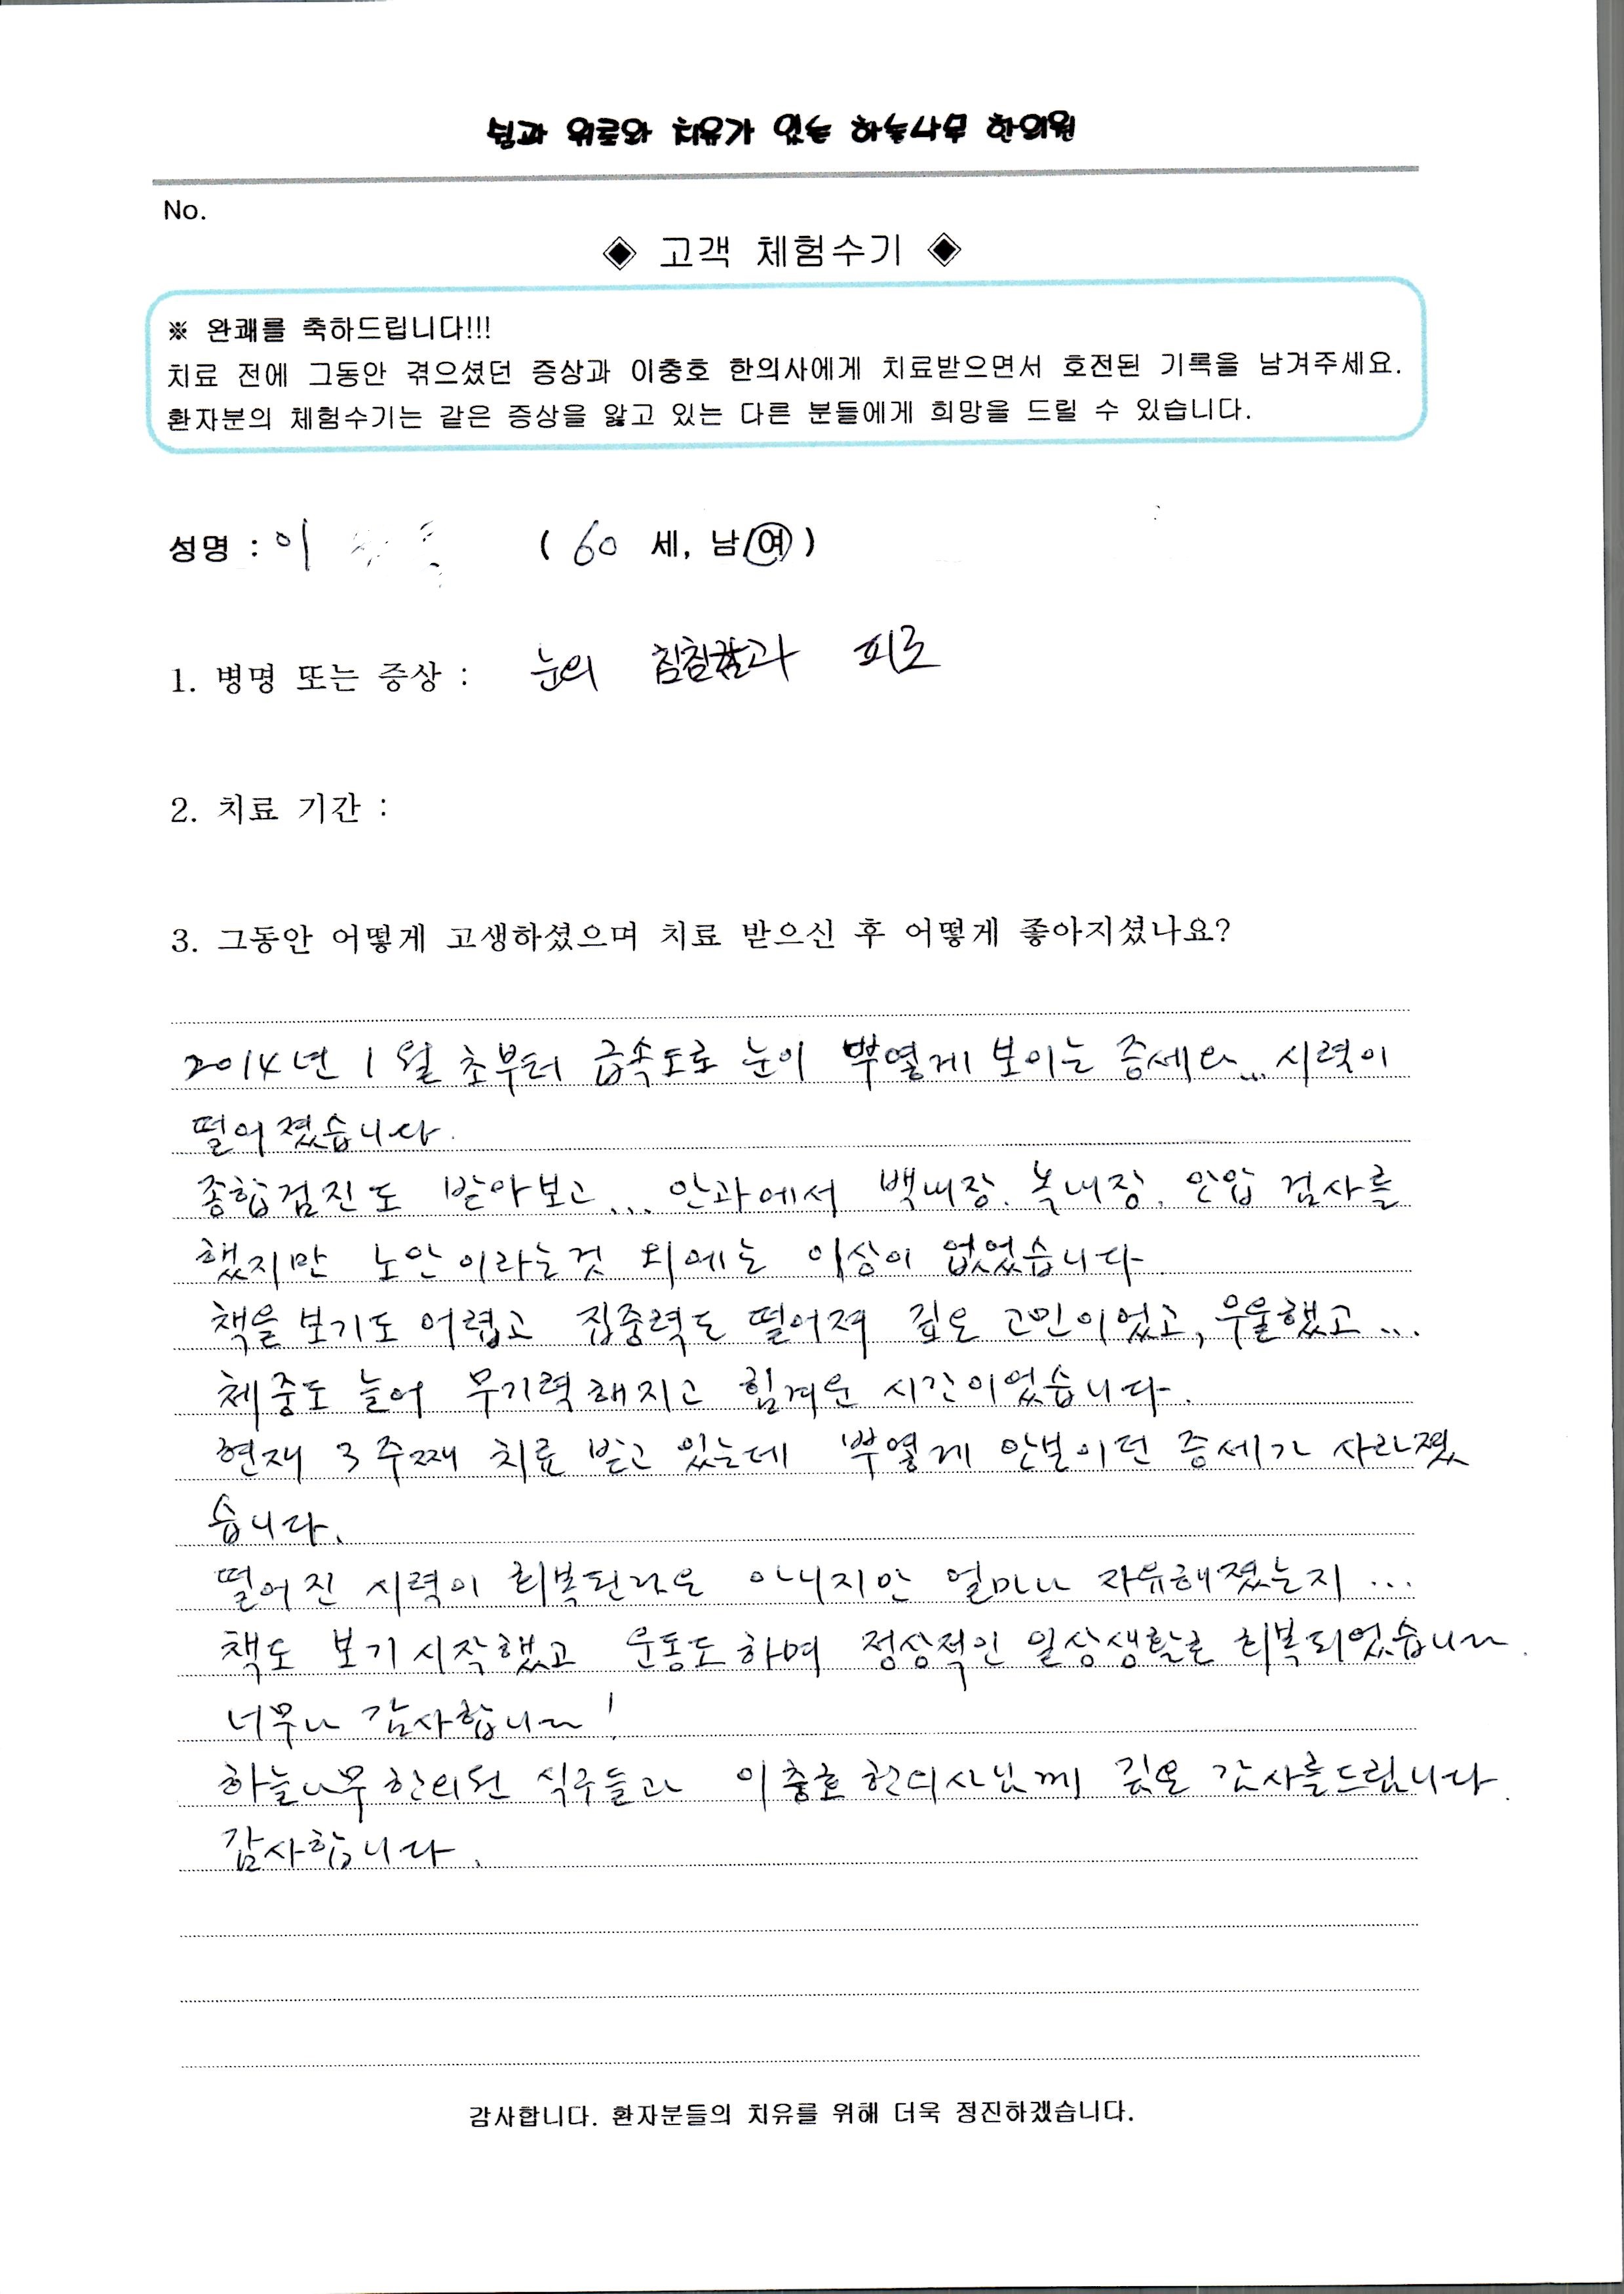 쉼과 위로와 치유가 있는 하늘나무 한의원
No.
◈ 고객 체험수기 ◈
※ 완쾌를 축하드립니다!!!
치료 전에 그동안 겪으셨던 증상과 이충호 한의사에게 치료받으면서 호전된 기록을 남겨주세요.
환자분의 체험수기는 같은 증상을 앓고 있는 다른 분들에게 희망을 드릴 수 있습니다.
성명 : 이 ( 60 세, 남/여 )
1. 병명 또는 증상 : 눈의 침침함과 피로
2. 치료 기간 :
3. 그동안 어떻게 고생하셨으며 치료 받으신 후 어떻게 좋아지셨나요?
2014년 1월 초부터 급속도로 눈이 뿌옇게 보이는 증세와... 시력이
떨어졌습니다.
종합검진도 받아보고... 안과에서 백내장. 녹내장. 안압 검사를
했지만 노안이라는것 외에는 이상이 없었습니다.
책을 보기도 어렵고 집중력도 떨어져 깊은 고민이었고, 우울했고...
체중도 늘어 무기력해지고 힘겨운 시간이었습니다.
현재 3주째 치료 받고 있는데 뿌옇게 안보이던 증세가 사라졌
습니다.
떨어진 시력이 회복된라은 아니지만 얼마나 자유해졌는지...
책도 보기 시작했고 운동도 하며 정상적인 일상생활로 회복되었습니다.
너무나 감사합니다!
하늘나무한의원 식구들과 이충호 한의사님께 깊은 감사를드립니다.
감사합니다.
감사합니다. 환자분들의 치유를 위해 더욱 정진하겠습니다.